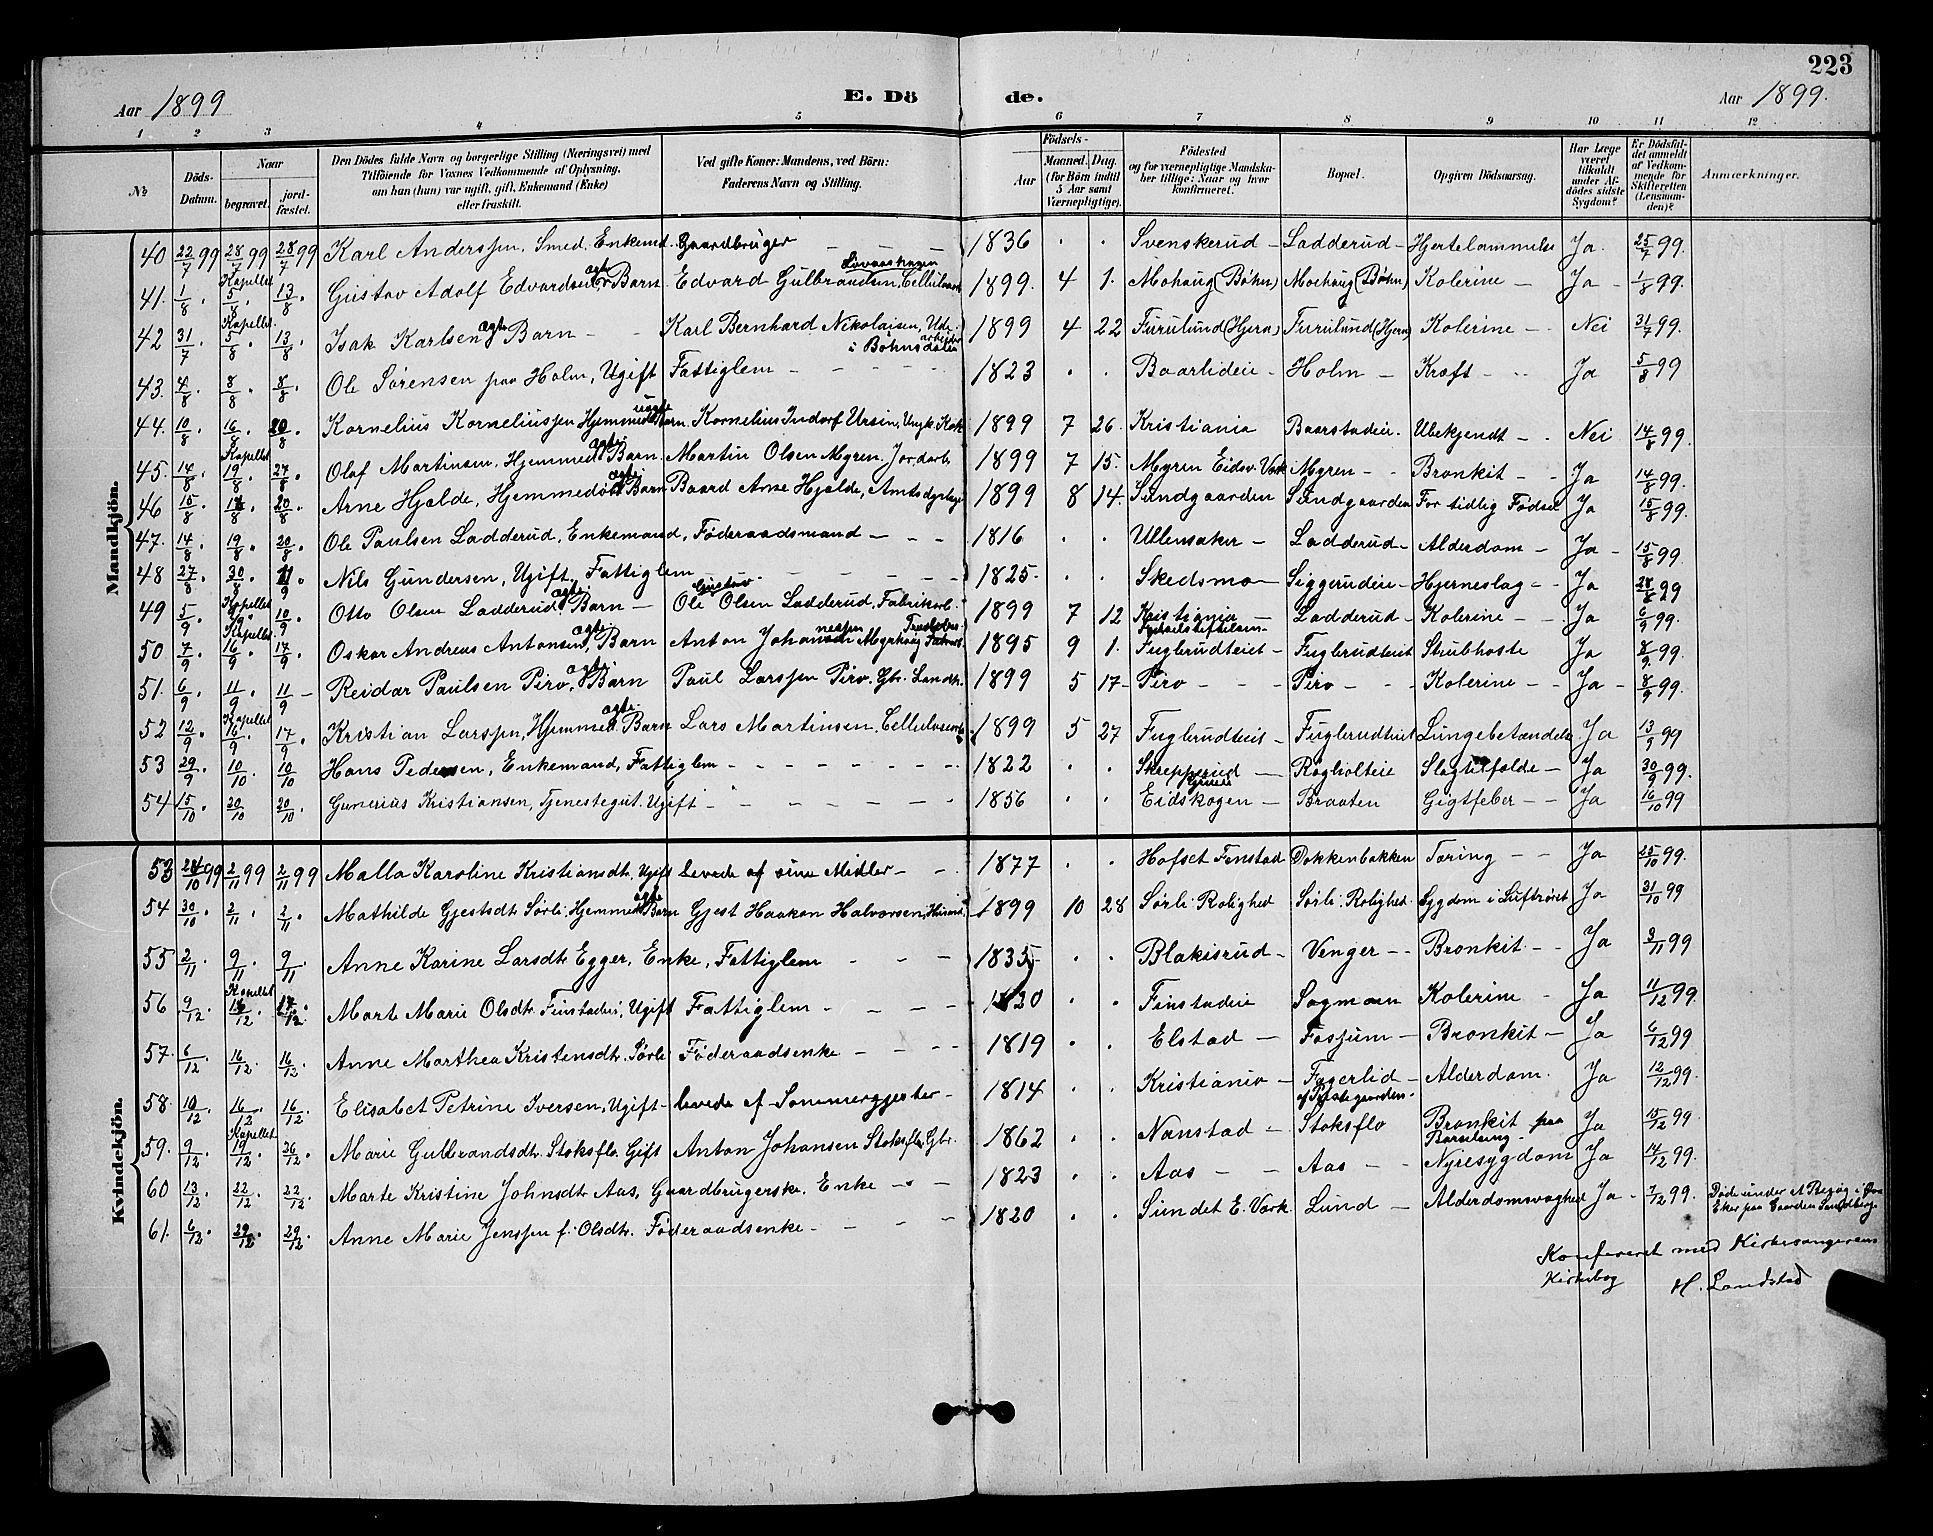 223
Aar 1899
E. Dö de.
Aar 1899.
1 2 3 4 5 6 7 8 9 10 11 12
№ Döds-Datum. Naar begravet. jordfæstet. Den Dödes fulde Navn og borgerlige Stilling (Næringsvei) med Tilföiende for Voxnes Vedkommende af Oplysning, om han (hun) var ugift, gift, Enkemand (Enke) eller fraskilt. Ved gifte Koner: Mandens, ved Börn: Faderens Navn og Stilling. Födsels- Aar Maaned. Dag. (for Börn indtil 5 Aar samt Værnepligtige). Födested og for værnepligtige Mandskaber tillige: Naar og hvor konfirmeret. Bopæl. Opgiven Dödsaarsag. Har Læge været tilkaldt under Afdödes sidste Sygdom? Er Dödsfaldet anmeldt af Vedkommende for Skifteretten (Lensmanden)? Anmærkninger.
Mandkjön.
40 22/7 99 28/7 99 28/7 99 Karl Anderssen, Smed, Enkemd. Gaardbruger — — — 1836 . . Svenskerud — Ladderud — Hjertelammelse Ja. 25/7 99.
41. 1/8 . Kapellet 5/8 . 13/8 . Gustav Adolf Edvardsen, ægte Barn. Edvard Gulbrandsen, Cellulosearb. 1899. 4 1. Mohaug (Bøhn) Moehaug (Bøhn) Kolerine — Ja — 1/8 99.
42 31/7 . Kapellet 5/8 . 13/8 . Isak Karlsen ægte Barn — — Karl Bernhard Nikolaisen, Ude-arbeider i Bøhnsdalen 1899 4 22 Furulund (Hjera) Furulund (Hjera) Kolerine — Nei 31/7 99.
43. 4/8 . 8/8 . 8/8 . Ole Sørensen paa Holm, Ugift Fattiglem — — — — 1823 . . Baarlideie — Holm — Kræft — Ja 5/8 99
44. 10/8 . 16/8 . 20/8 . Kornelius Korneliussen Hjemmed. uægte Barn. Kornelius Indorf Ursin, Ungk. Kok 1899 7 26. Kristiania Baarstadeie. Ubekjendt — Nei 14/8 99.
45. 14/8 . Kapellet 19/8 . 27/8 . Olaf Martinsen, Hjemmed. ægte Barn. Martin Olsen Myren, Jordarb. 1899 7 15. Myren Eidsv. Værk Myren — Bronkit — Ja 14/8 99.
46 15/8 . 17/8 . 20/8 . Arne Hjelde, Hjemmedøbt ægte Barn Baard Arne Hjelde, Amtsdyrlæge 1899 8 14. Sundgaarden Sundgaarden For tidlig Fødsel Ja 15/8 99.
47. 14/8 . 19/8 . 20/8 . Ole Paulsen Ladderud, Enkemand, Føderaadsmand — — — 1816 . . Ullensaker — Ladderud — Alderdom — Ja — 15/8 99.
48 27/8 . 30/8 . 1/9 . Nils Gundersen, Ugift, Fattiglem — — — — 1825 . . Skedsmo — Siggerudeie — Hjerneslag — Ja 28/8 99
49 5/9 . Kapellet 9/9 . 10/9 . Otto Olsen Ladderud, ægte Barn — Ole Gustav Olsen Ladderud, Fabrikarb. 1899 7 12 Kristiania Fødselsstiftelsen — Ladderud — Kolerine — Ja 6/9 99.
50 7/9 . Kapellet 16/9 . 17/9 . Oskar Andreas Antonsen, ægte Barn Anton Johannessen Myrhaug 1895 9 1. Fuglerudteiet — Fuglerudteiet Strubhoste Ja 8/9 99.
51. 6/9 . 11/9 . 11/9 — Reidar Paulsen Piro, ægte Barn Paul Larssen Piro, Gbr. Landh. 1899 5 17 — Piro — — Piro — — Kolerine — Ja — 8/9 99.
52 12/9 . Kapellet 16/9 . 17/9 . Kristian Larssen, Hjemmed. ægte Barn Lars Martinsen, Cellulosearb. 1899 5 27 Fuglerudteiet — Fuglerudteiet Lungebetændelse. Ja 13/9 99
53 29/9 . 10/10 . 10/10 Hans Pedersen, Enkemand, Fattiglem — — — — 1822 . . Skrepperud — Rogholteie Slagtilfælde — Ja 30/9 99.
54 15/10 . 20/10 20/10 . Gunerius Kristiansen, Tjenestegut, Ugift — — — — — 1856 . . Eidskogen — Braaten Gigtfeber — Ja 16/10 99
Kvindekjön.
53 24/10 99 2/11 99 2/11 99 Malla Karoline Kristiansdtr. Ugift levede af sine Midler — — 1877 . . Hofset Fenstad Dokkenbakken Tæring — Ja 25/10 99.
54 30/10 . 2/11 . 2/11 . Mathilde Gjestsdtr. Sørli. Hjemmed. ægte Barn Gjest Haakon Halvorsen, Husmd. 1899 10 28 Sørli. Rolighed Sørli. Rolighed. Sygdom i Luftrøret Ja 31/10 99
55 2/11 . 9/11 . 9/11 . Anne Karine Larsdtr. Egger, Enke, Fattiglem — — — 1835 . . Blakisrud — Venger — Bronkit — Ja 3/11 99
56 9/12 . Kapellet 14/12 . 17/12 . Marte Marie Olsdtr. Finstadeie, Ugift Fattiglem — — — 1820 . . Finstadeie Sagmoen Kolerine — Ja 11/12 99.
57. 6/12 . 16/12 . 16/12 . Anne Marthea Kristensdtr. Sørli Føderaadsenke — — — 1819 . . Elstad — Fossum — Bronkit — Ja 6/12 99
58. 10/12 . 16/12 . 16/12 . Elisabet Petrine Iversen, Ugift — levede af Sommergjester — 1814 . . Kristiania — Fagerlid af Præstegaarden. Alderdom. Ja 12/12 99.
59. 9/12 . Kapellet 19/12 . 26/12 . Marie Gulbrandsdtr. Stoksflo, Gift Anton Johansen Stoksflo, Gbr. 1862 . . Nanstad — Stoksflo Bronkit paa Barselseng — Ja 15/12 99.
60 13/12 . 22/12 . 22/12 . Marte Kristine Johnsdtr. Aas, Gaardbrugerske, Enke — — 1823 . . Aas — — Aas — — Nyresygdom Ja 14/12 99.
61. 6/12 . 29/12 . 29/12 . Anne Marie Jenssen f. Olsdtr. Føderaadsenke — — — — 1820 . . Sundet E. Værk Lund — Alderdomsvaghed Ja — 7/12 99. Døde under et Besøg i Eker paa Gaarden
Konfereret med Kirkesangerens
Kirkebog H. Landstad